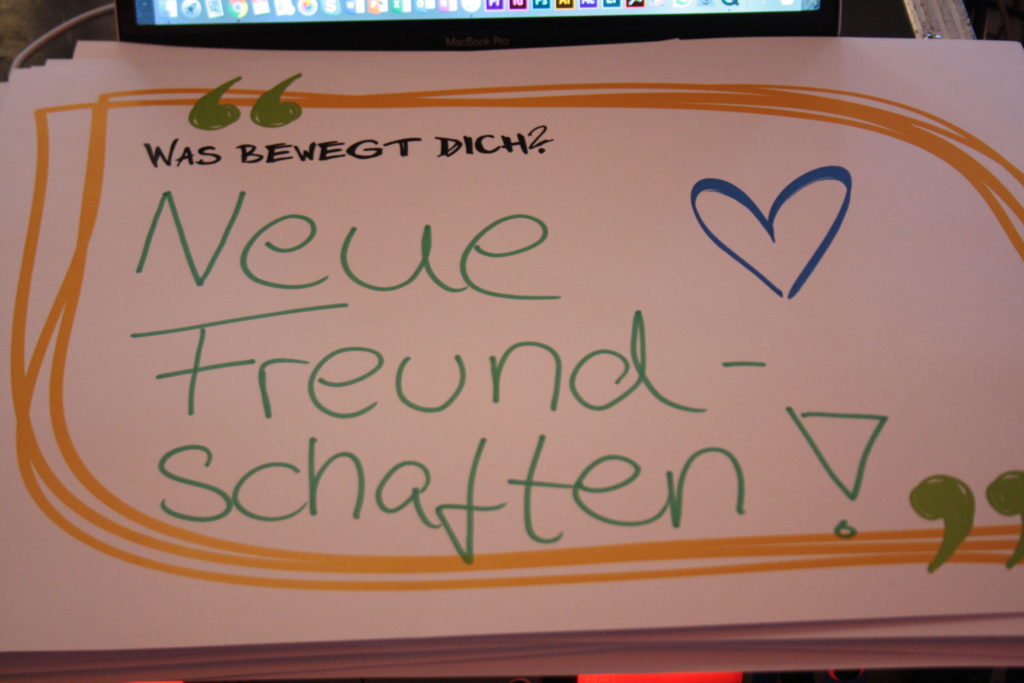 MacBook Pro
“
WAS BEWEGT DICH?
Neue
Freund-
schaften!
”